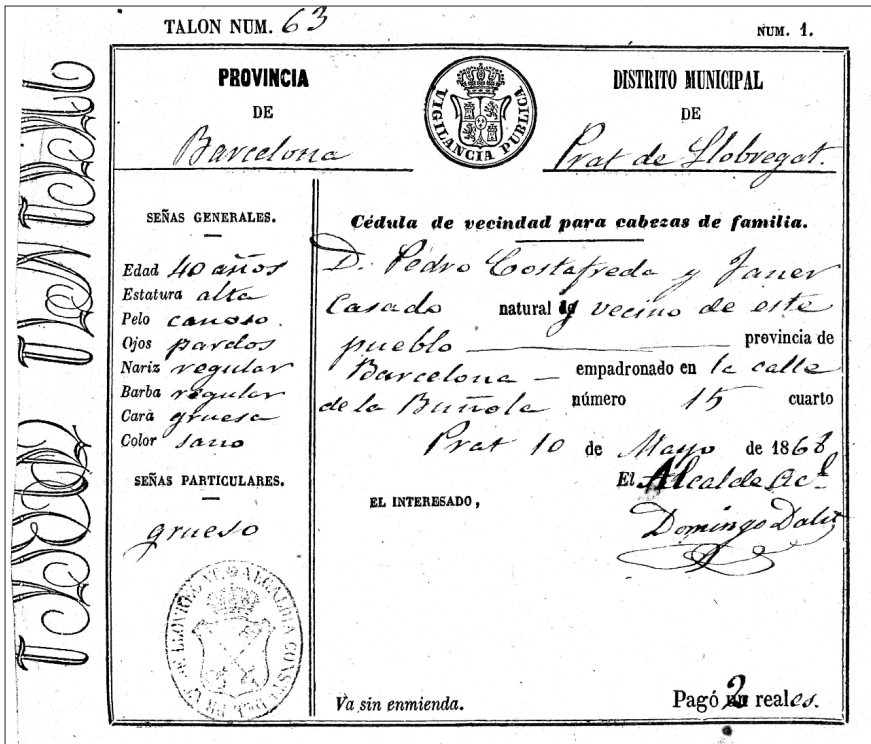 TALON NUM. 63
NUM. 1.
PROVINCIA
DE
Barcelona
VIGILANCIA PUBLICA
DISTRITO MUNICIPAL
DE
Prat de Llobregat.
SEÑAS GENERALES.
Edad 40 años
Estatura alta
Pelo canoso.
Ojos pardos
Nariz regular
Barba regular
Cara gruesa
Color sano
SEÑAS PARTICULARES.
grueso
Cédula de vecindad para cabezas de familia.
D. Pedro Costafreda y Janer
Casado natural y vecino de este
pueblo provincia de
Barcelona — empadronado en la calle
de la Buñola número 15 cuarto
Prat 10 de Mayo de 1868
El Alcalde Acl.
EL INTERESADO,
Domingo
ALCALDIA CONSTL DEL PRAT DE LLOBREGAT
Va sin enmienda.
Pagó 2 reales.